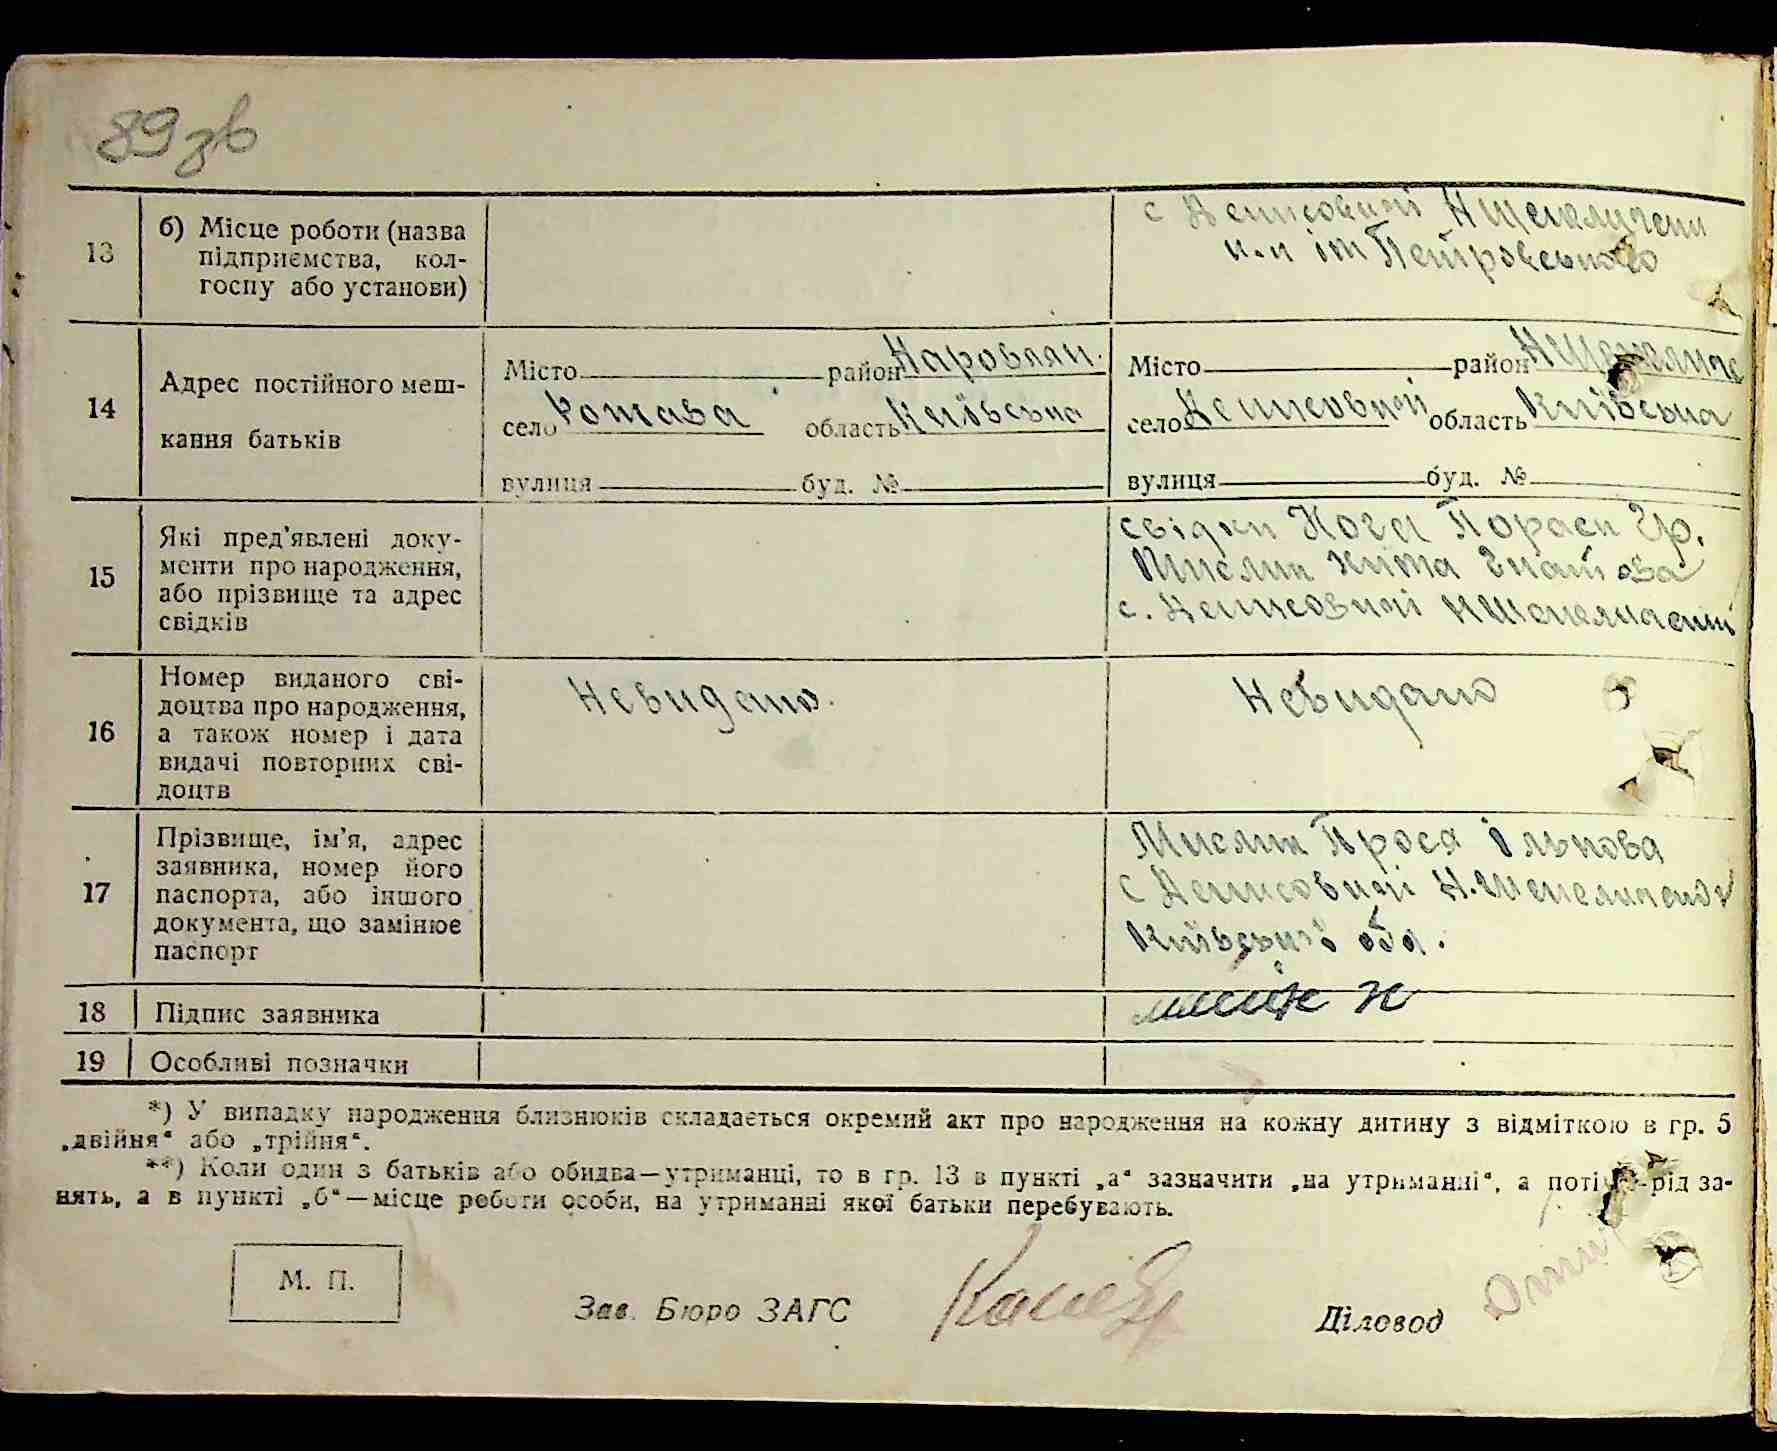 89 зв
13
б) Місце роботи (назва
підприємства, кол-
госпу або установи)
с Денисовичі НШепеличськ
к-п ім Петровського
14
Адрес постійного меш-
кання батьків
Місто район Наровлян.
село область Київська
вулиця буд. №
Місто район НШепелич
село Денисовичі область Київська
вулиця буд. №
15
Які пред'явлені доку-
менти про народження,
або прізвище та адрес
свідків
свідки Параск Гр.
Мислик Гнатова
с. Денисовичі НШепелическ
16
Номер виданого сві-
доцтва про народження,
а також номер і дата
видачі повторних сві-
доцтв
Невидано.
Невидано
17
Прізвище, ім'я, адрес
заявника, номер його
паспорта, або іншого
документа, що замінює
паспорт
Мислик Прося Ількова
с Денисовичі Н.Шепелическ
Київської обл.
18
Підпис заявника
19
Особливі позначки
*) У випадку народження близнюків складається окремий акт про народження на кожну дитину з відміткою в гр. 5
„двійня“ або „трійня“.
**) Коли один з батьків або обидва—утриманці, то в гр. 13 в пункті „а“ зазначити „на утриманні“, а потім—рід за-
нять, а в пункті „б“—місце роботи особи, на утриманні якої батьки перебувають.
М. П.
Зав. Бюро ЗАГС
Діловод